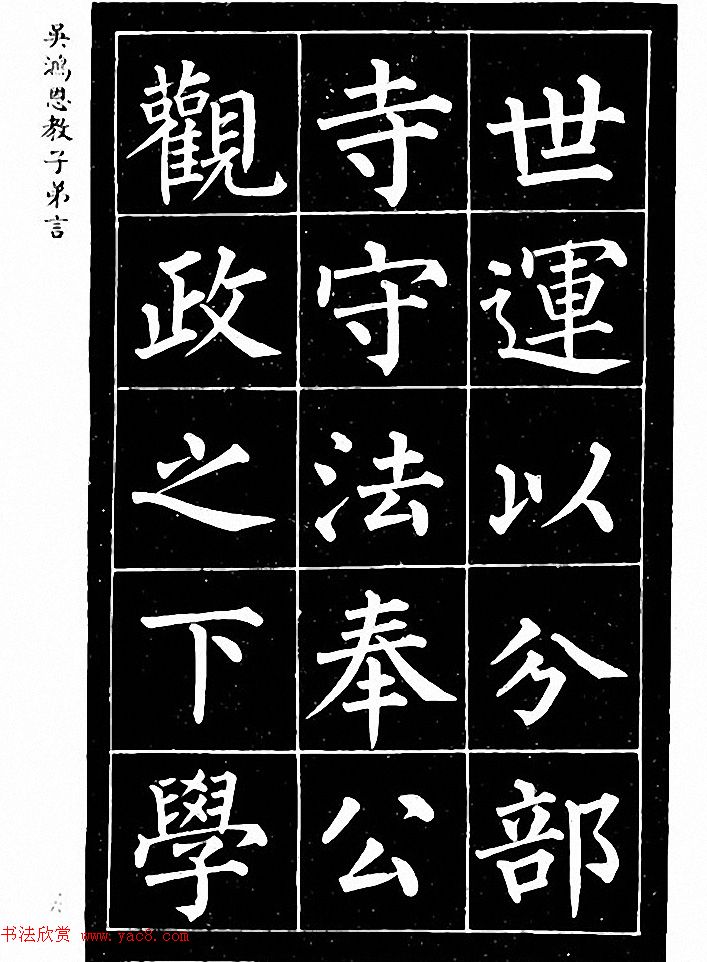 世運以分部
寺守法奉公
觀政之下學
吳鴻恩教子弟言
六
书法欣赏 www.yac8.com